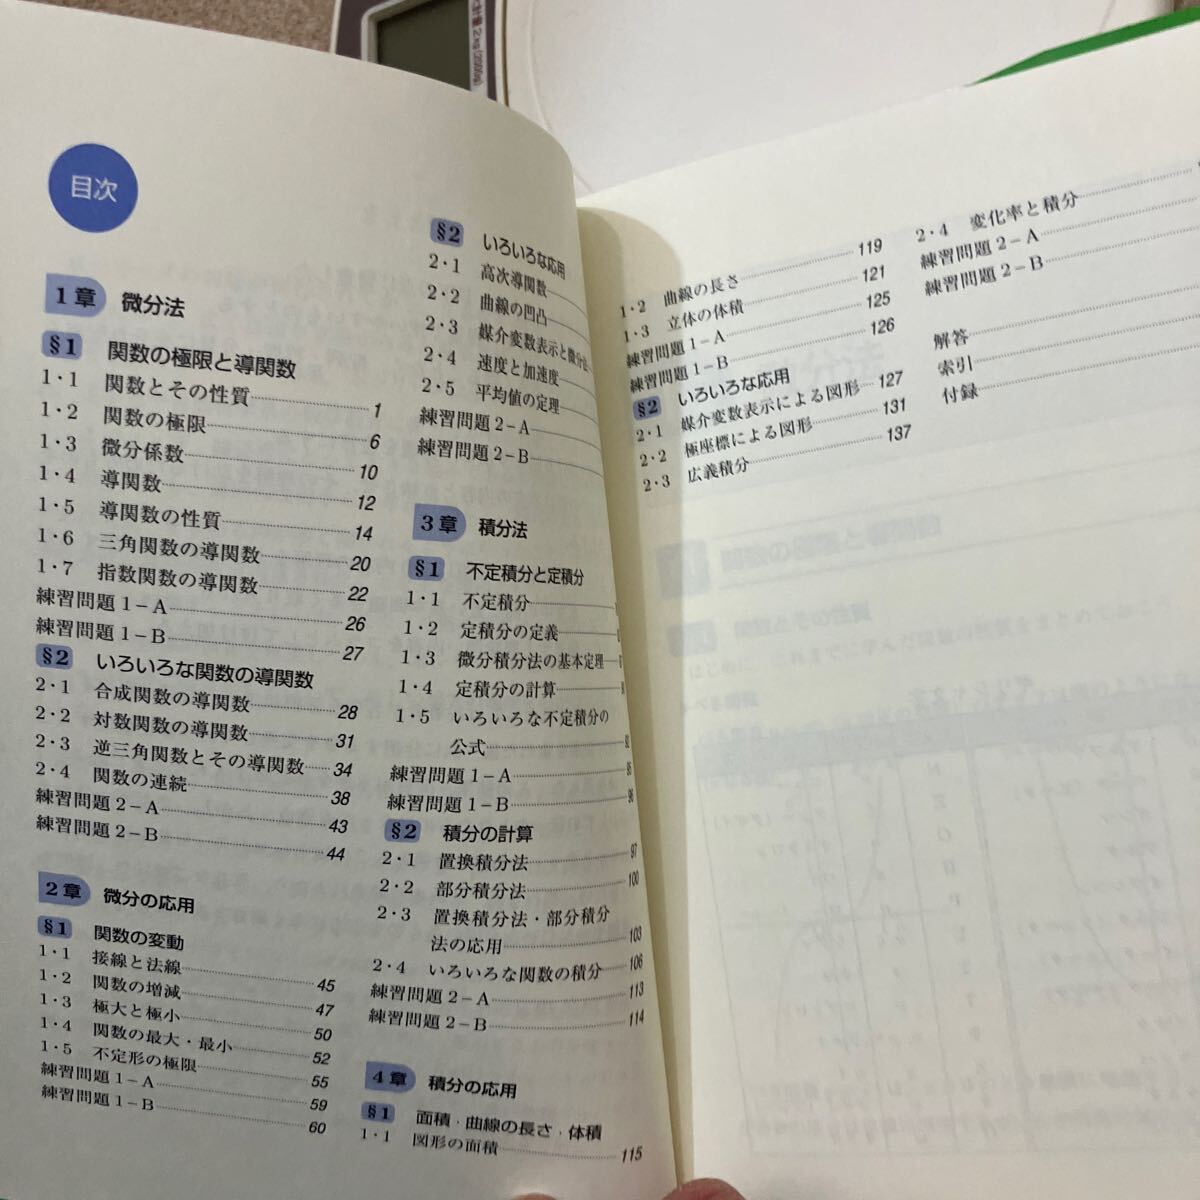 目次
1章 微分法
§1 関数の極限と導関数
1・1 関数とその性質 1
1・2 関数の極限 6
1・3 微分係数 10
1・4 導関数 12
1・5 導関数の性質 14
1・6 三角関数の導関数 20
1・7 指数関数の導関数 22
練習問題1-A 26
練習問題1-B 27
§2 いろいろな関数の導関数
2・1 合成関数の導関数 28
2・2 対数関数の導関数 31
2・3 逆三角関数とその導関数 34
2・4 関数の連続 38
練習問題2-A 43
練習問題2-B 44
2章 微分の応用
§1 関数の変動
1・1 接線と法線 45
1・2 関数の増減 47
1・3 極大と極小 50
1・4 関数の最大・最小 52
1・5 不定形の極限 55
練習問題1-A 59
練習問題1-B 60
§2 いろいろな応用
2・1 高次導関数
2・2 曲線の凹凸
2・3 媒介変数表示と微分法
2・4 速度と加速度
2・5 平均値の定理
練習問題2-A
練習問題2-B
3章 積分法
§1 不定積分と定積分
1・1 不定積分
1・2 定積分の定義
1・3 微分積分法の基本定理
1・4 定積分の計算
1・5 いろいろな不定積分の
公式 92
練習問題1-A 95
練習問題1-B 96
§2 積分の計算
2・1 置換積分法 97
2・2 部分積分法 100
2・3 置換積分法・部分積分
法の応用 103
2・4 いろいろな関数の積分 106
練習問題2-A 113
練習問題2-B 114
4章 積分の応用
§1 面積・曲線の長さ・体積
1・1 図形の面積 115
1・2 曲線の長さ 119
1・3 立体の体積 121
練習問題1-A 125
練習問題1-B 126
§2 いろいろな応用
2・1 媒介変数表示による図形 127
2・2 極座標による図形 131
2・3 広義積分 137
2・4 変化率と積分
練習問題2-A
練習問題2-B
解答
索引
付録